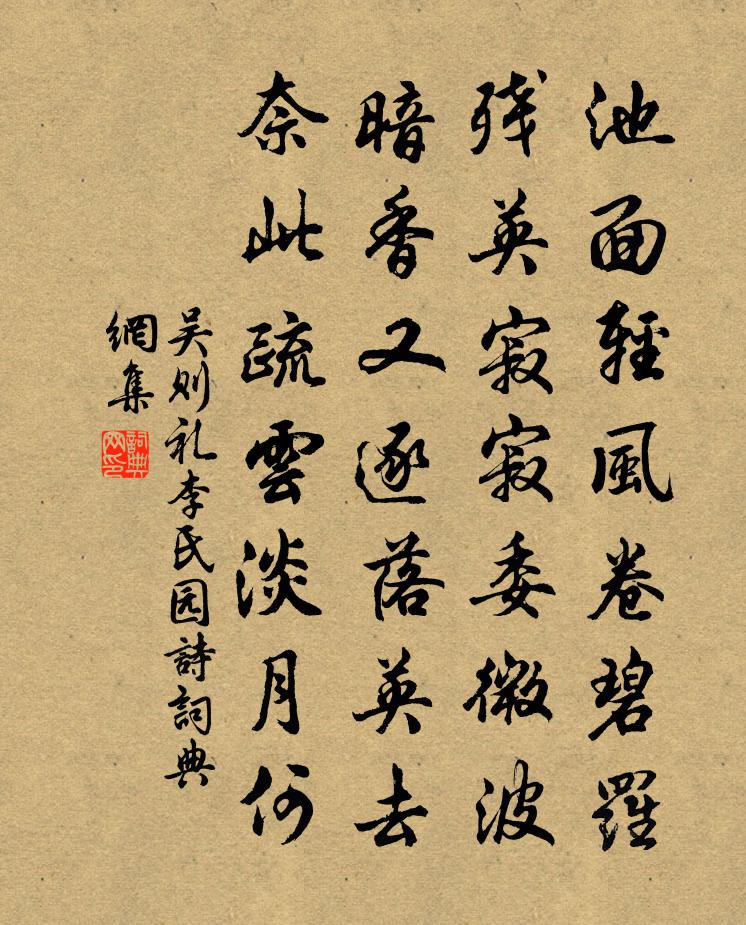 池面輕風卷碧羅
残英寂寂委微波
暗香又逐落英去
奈此疏雲淡月何
吴则礼李氏园詩詞典
網集
詞典网印